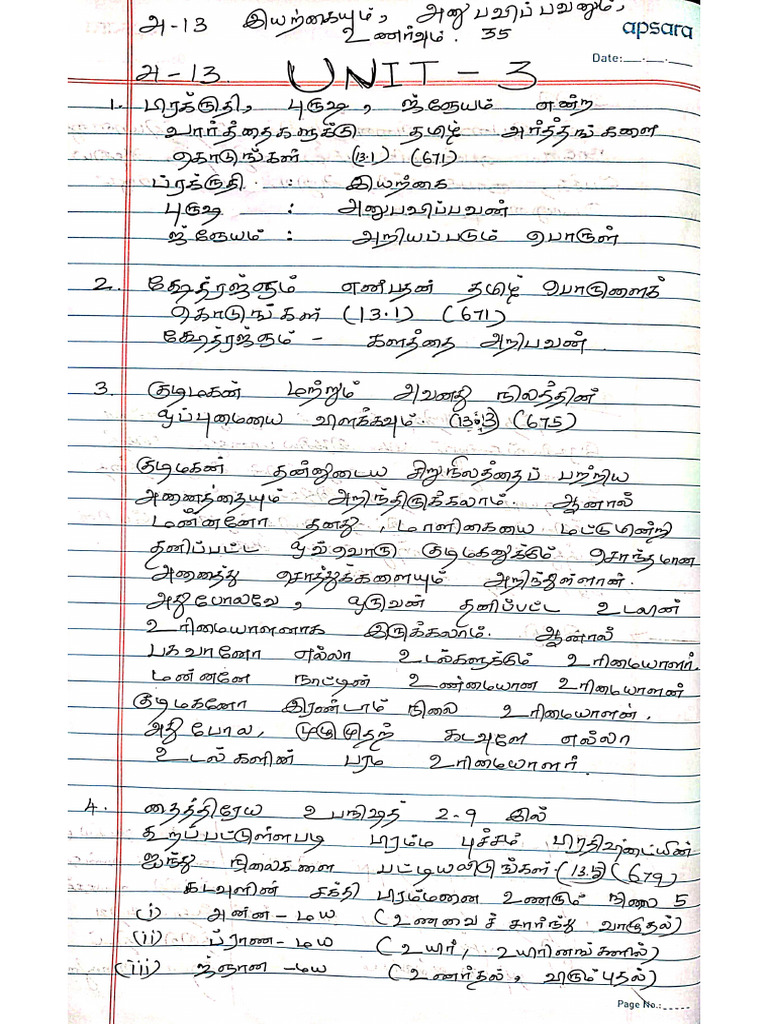 அ-13 இயற்கையும், அனுபவிப்பவனும்,
உணர்வும். 35
apsara
Date:
அ-13. UNIT-3
1. பிரக்ருதி, புருஷ, ஜ்ஞேயம் என்ற
வார்த்தைகளுக்கு தமிழ் அர்த்தங்களை
கொடுங்கள் (13.1) (671)
ப்ரக்ருதி : இயற்கை
புருஷ : அனுபவிப்பவன்
ஜ்ஞேயம் : அறியப்படும் பொருள்
2. க்ஷேத்ரஜ்ஞம் என்பதன் தமிழ் பொருளைக்
கொடுங்கள் (13.1) (671)
க்ஷேத்ரஜ்ஞம் - களத்தை அறிபவன்.
3. குடிமகன் மற்றும் அவனது நிலத்தின்
ஒப்புமையை விளக்கவும். (13.3) (675)
குடிமகன் தன்னுடைய சிறுநிலத்தைப் பற்றிய
அனைத்தையும் அறிந்திருக்கலாம். ஆனால்
மன்னனோ தனது மாளிகையை மட்டுமின்றி
தனிப்பட்ட ஒவ்வொரு குடிமகனுக்கும் சொந்தமான
அனைத்து சொத்துக்களையும் அறிந்துள்ளான்.
அதுபோலவே, ஒருவன் தனிப்பட்ட உடலின்
உரிமையாளனாக இருக்கலாம். ஆனால்
பகவானோ எல்லா உடல்களுக்கும் உரிமையாளர்.
மன்னனே நாட்டின் உண்மையான உரிமையாளன்
குடிமகனோ இரண்டாம் நிலை உரிமையாளன்.
அது போல, முழுமுதற் கடவுளே எல்லா
உடல்களின் பரம உரிமையாளர்.
4. தைத்திரேய உபநிஷத் 2-9 இல்
கூறப்பட்டுள்ளபடி பிரம்ம புச்சம் பிரதிஷ்டையின்
ஐந்து நிலைகளை பட்டியலிடுங்கள் (13.5) (679)
கடவுளின் சக்தி பிரம்மனை உணரும் நிலை 5
(i) அன்ன-மய (உணவைச் சார்ந்து வாழுதல்)
(ii) ப்ராண-மய (உயிர், உயிரினங்களில்)
(iii) ஜ்ஞான-மய (உணர்தல், விரும்புதல்)
Page No.: